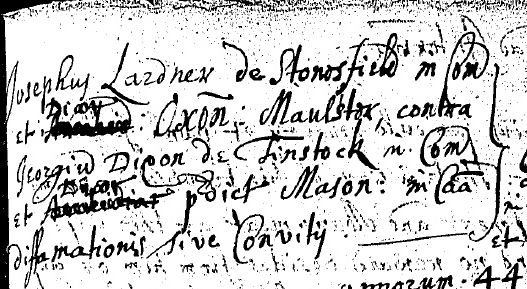 Josephus Lardner de Stonsfield in Com
et Dioc
Oxōn: Maulster, contra
Georgiū Dixon de Finstock in Com
et Dioc pdict Mason: in Cāā
diffamationis sive Convitij
44
et